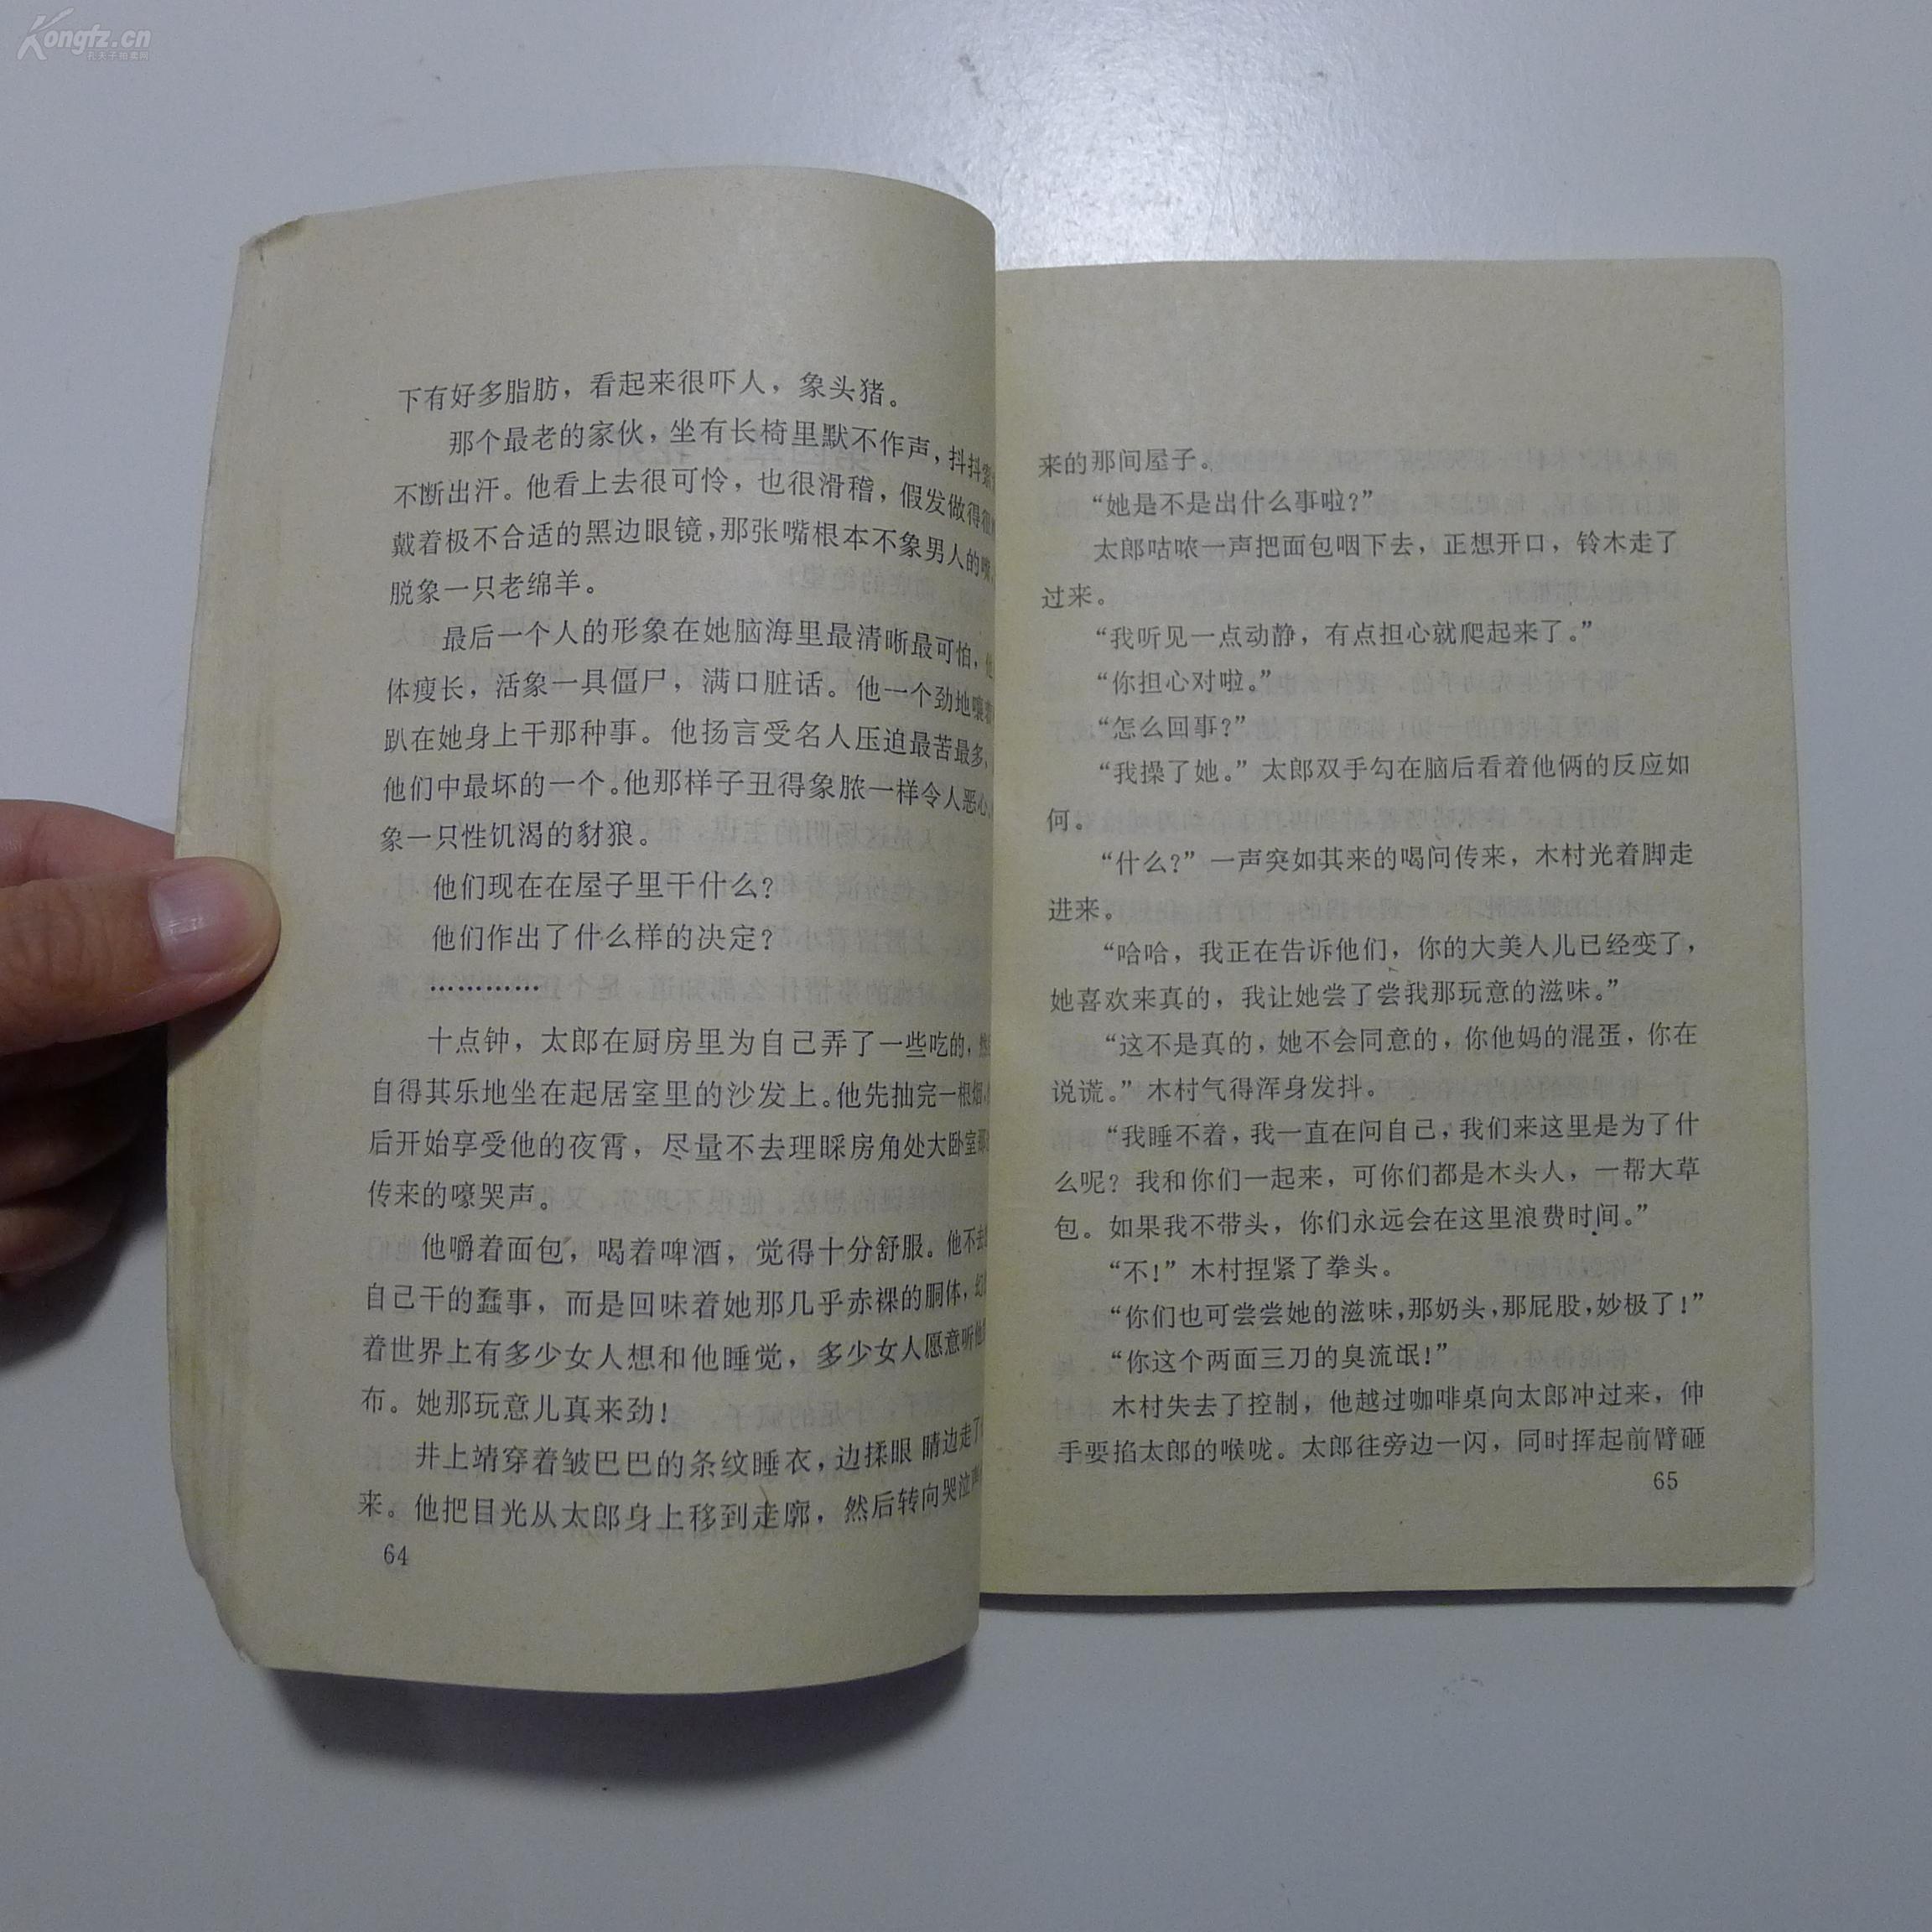 Kongfz.cn
下有好多脂肪，看起来很吓人，象头猪。
那个最老的家伙，坐有长椅里默不作声，抖抖
不断出汗。他看上去很可怜，也很滑稽，假发做得很
戴着极不合适的黑边眼镜，那张嘴根本不象男人的嘴
脱象一只老绵羊。
最后一个人的形象在她脑海里最清晰最可怕，他
体瘦长，活象一具僵尸，满口脏话。他一个劲地嚷着
趴在她身上干那种事。他扬言受名人压迫最苦最多，
他们中最坏的一个。他那样子丑得象脓一样令人恶心
象一只性饥渴的豺狼。
他们现在在屋子里干什么？
他们作出了什么样的决定？
…………
十点钟，太郎在厨房里为自己弄了一些吃的，然
自得其乐地坐在起居室里的沙发上。他先抽完一根烟，
后开始享受他的夜霄，尽量不去理睬房角处大卧室
传来的嚎哭声。
他嚼着面包，喝着啤酒，觉得十分舒服。他不去
自己干的蠢事，而是回味着她那几乎赤裸的胴体，幻
着世界上有多少女人想和他睡觉，多少女人愿意听他
布。她那玩意儿真来劲！
井上靖穿着皱巴巴的条纹睡衣，边揉眼睛边走了
来。他把目光从太郎身上移到走廓，然后转向哭泣声
64
来的那间屋子。
“她是不是出什么事啦？”
太郎咕哝一声把面包咽下去，正想开口，铃木走了
过来。
“我听见一点动静，有点担心就爬起来了。”
“你担心对啦。”
“怎么回事？”
“我操了她。”太郎双手勾在脑后看着他俩的反应如
何。
“什么？”一声突如其来的喝问传来，木村光着脚走
进来。
“哈哈，我正在告诉他们，你的大美人儿已经变了，
她喜欢来真的，我让她尝了尝我那玩意的滋味。”
“这不是真的，她不会同意的，你他妈的混蛋，你在
说谎。”木村气得浑身发抖。
“我睡不着，我一直在问自己，我们来这里是为了什
么呢？我和你们一起来，可你们都是木头人，一帮大草
包。如果我不带头，你们永远会在这里浪费时间。”
“不！”木村捏紧了拳头。
“你们也可尝尝她的滋味，那奶头，那屁股，妙极了！”
“你这个两面三刀的臭流氓！”
木村失去了控制，他越过咖啡桌向太郎冲过来，伸
手要掐太郎的喉咙。太郎往旁边一闪，同时挥起前臂砸
65